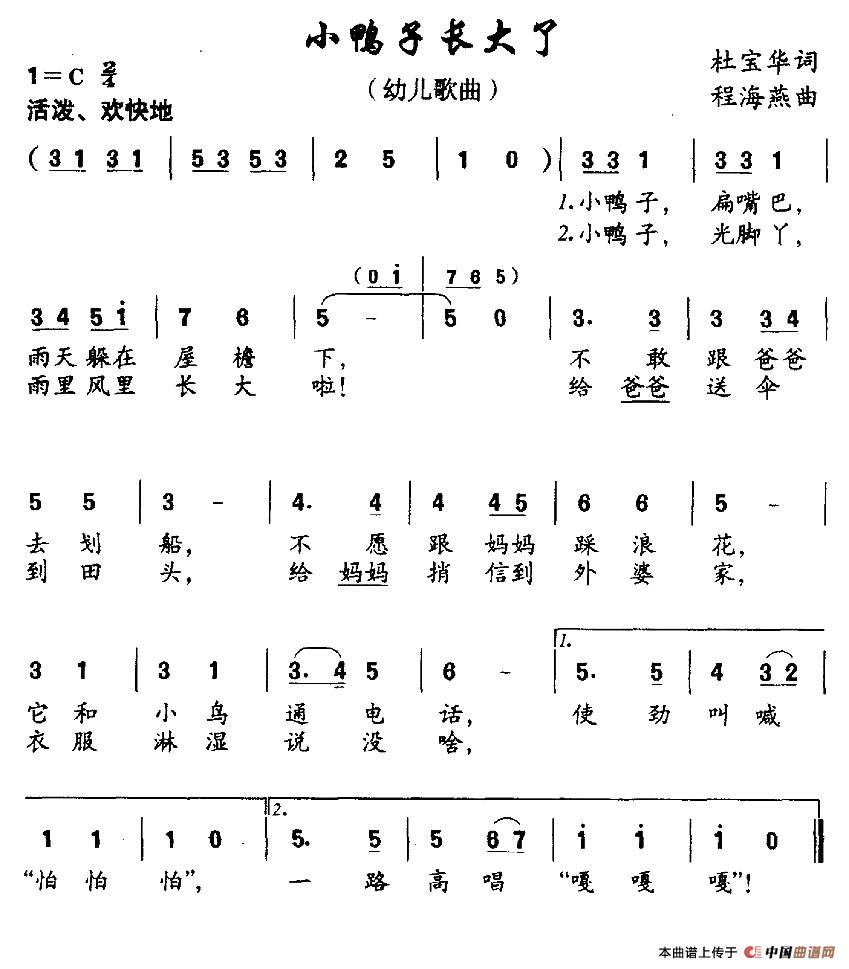 小鸭子长大了
1=C 2/4
（幼儿歌曲）
杜宝华词
程海燕曲
活泼、欢快地
( 3 1 3 1 | 5 3 5 3 | 2 5 | 1 0 ) | 3 3 1 | 3 3 1 |
1.小鸭子， 扁嘴巴，
2.小鸭子， 光脚丫，
( 0 i | 7 6 5 )
3 4 5 i | 7 6 | 5 - | 5 0 | 3. 3 | 3 3 4 |
雨天躲在 屋檐 下， 不敢跟爸爸
雨里风里 长大 啦！ 给爸爸送伞
5 5 | 3 - | 4. 4 | 4 4 5 | 6 6 | 5 - |
去划船， 不愿跟妈妈踩浪花，
到田头， 给妈妈捎信到外婆家，
3 1 | 3 1 | 3. 4 5 | 6 - | 1. 5. 5 | 4 3 2 |
它和小鸟通电话， 使劲叫喊
衣服淋湿说没啥，
1 1 | 1 0 | 2. 5. 5 | 5 6 7 | i i | i 0 ‖
“怕怕怕”， 一路高唱“嘎嘎嘎”！
本曲谱上传于 中国曲谱网